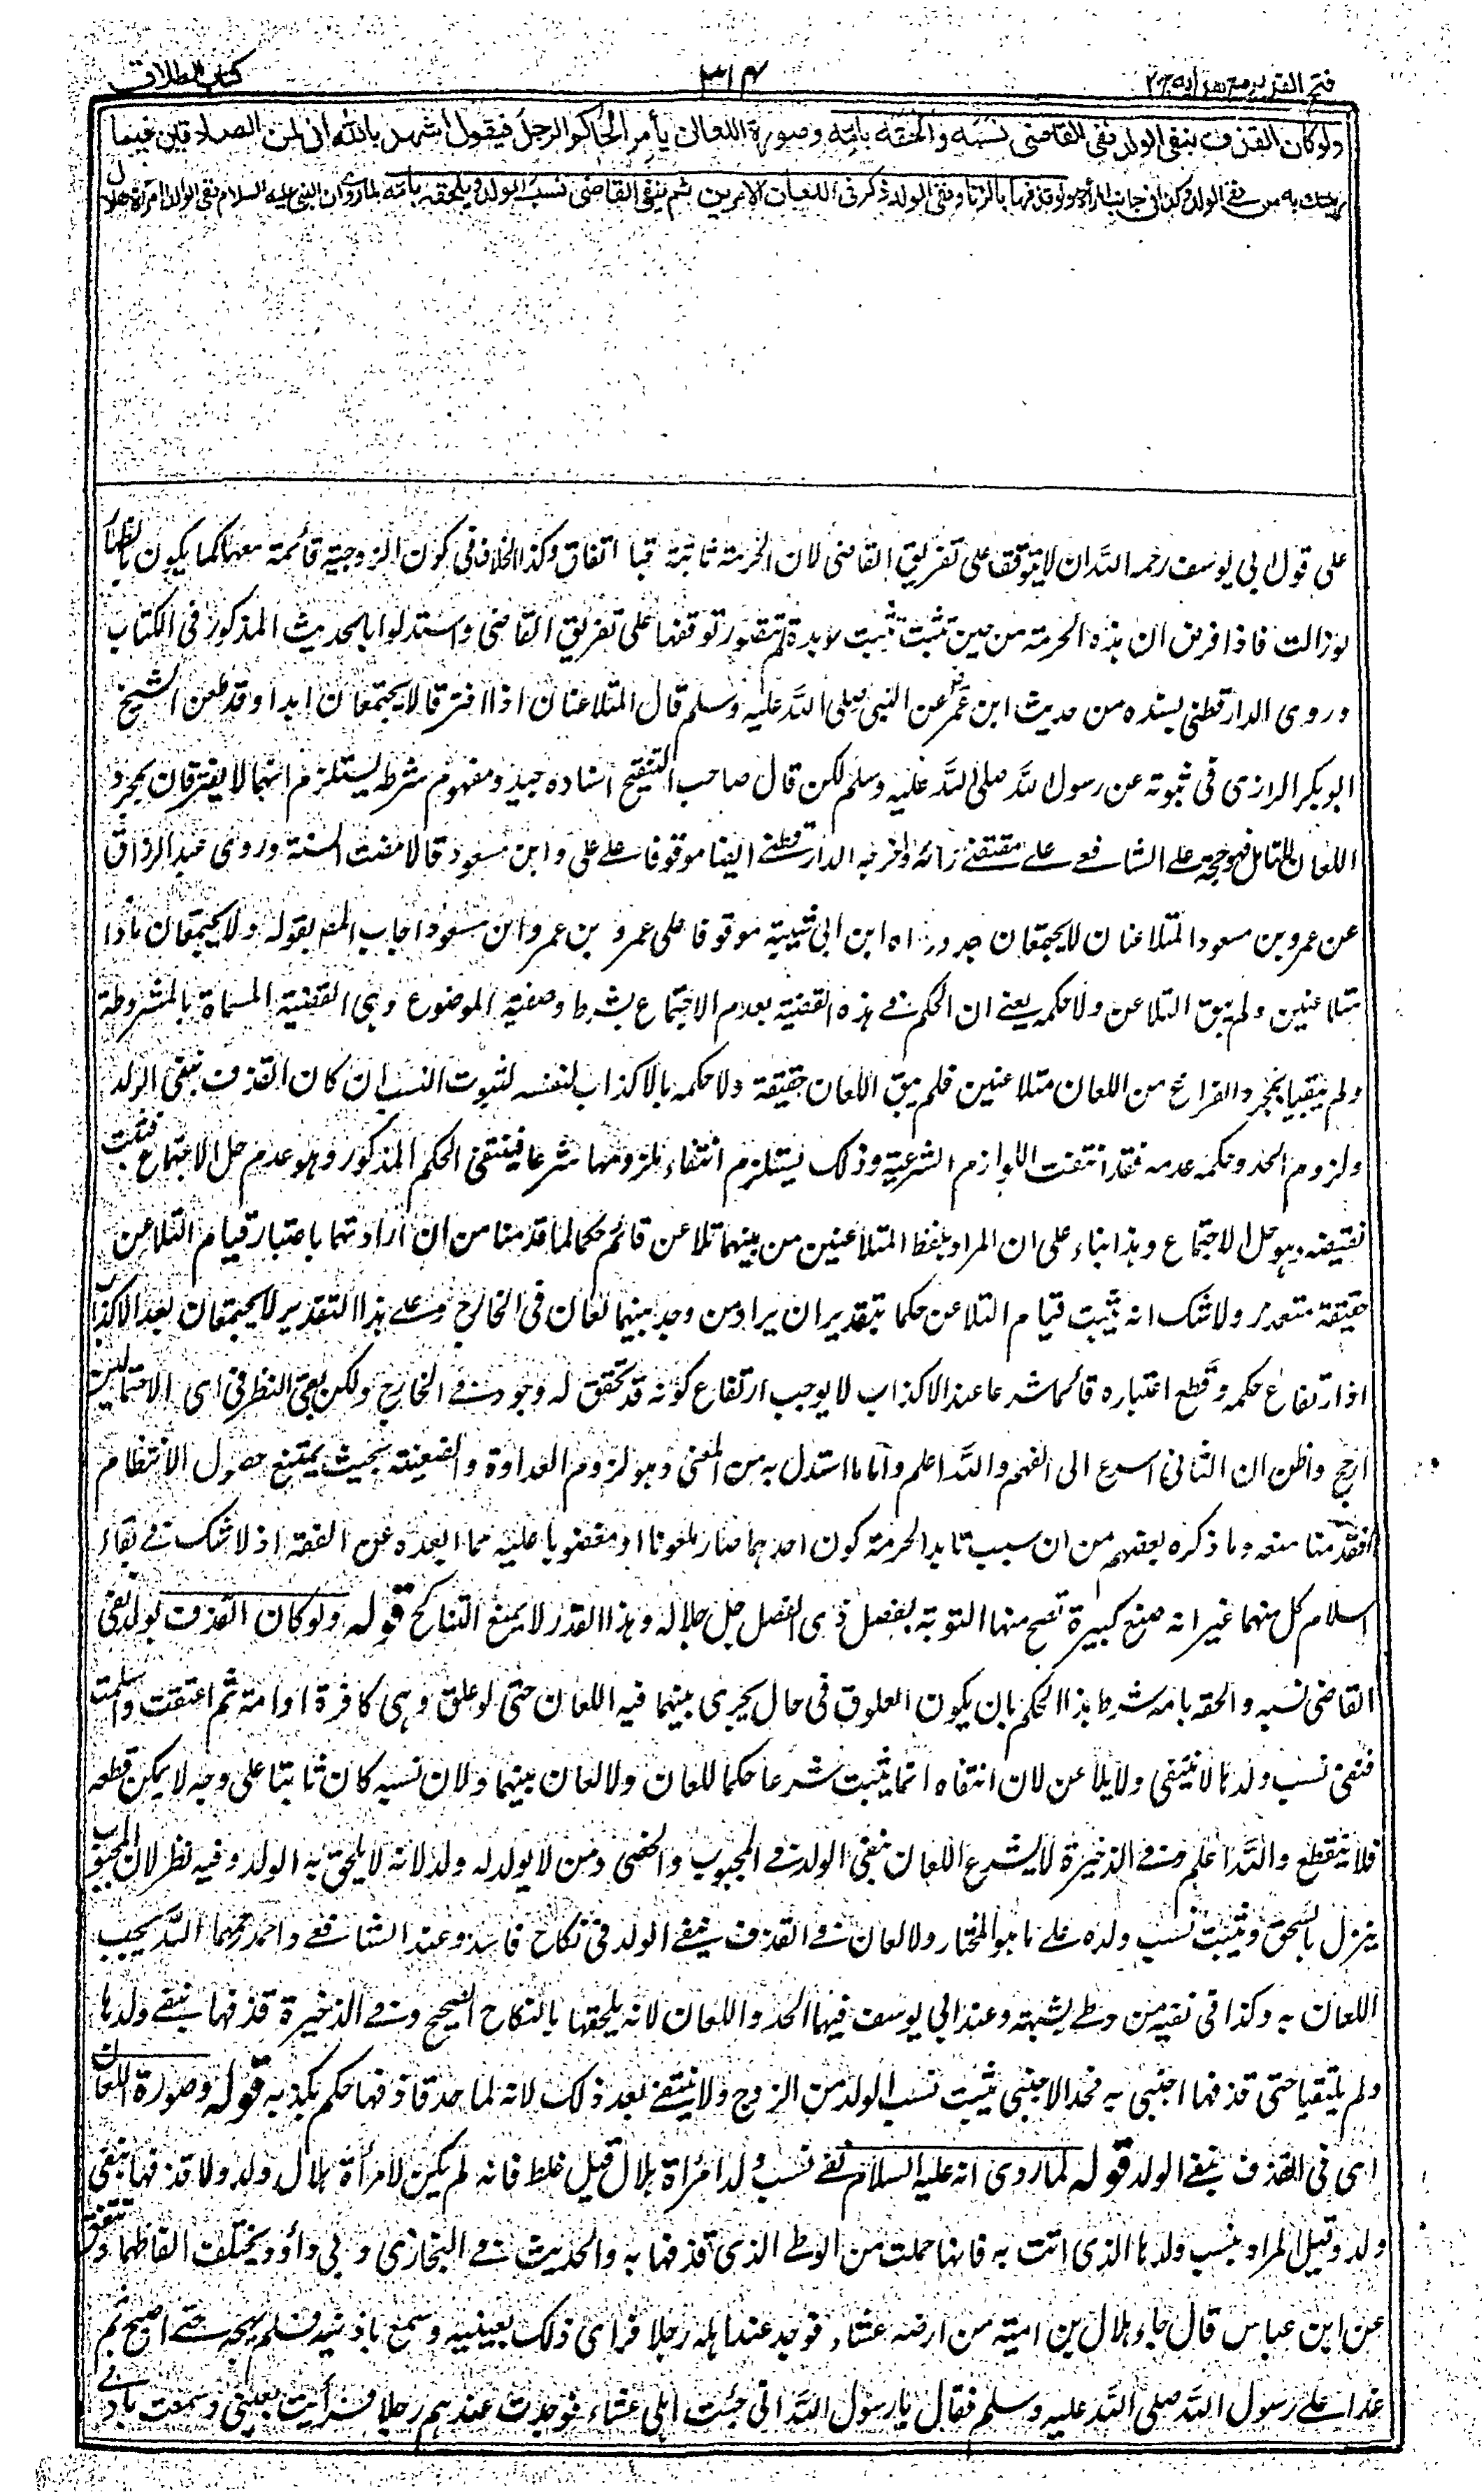 فتح القدير مع هداية ج٢
٣١٤
كتاب الطلاق
ولو كان القذف بنفى الولد نفى القاضى نسبه والحقه بامه وصورة اللعان ان يأمر الحاكم الرجل فيقول اشهد بالله انى لمن الصادقين فيما
رميتك به من نفى الولد وكذا فى جانب المرأة ولو قذفها بالزنا ونفى الولد ذكر فى اللعان الامرين ثم ينفى القاضى نسب الولد ويلحقه بامه لما روى ان النبى عليه السلام نفى الولد امرأة هلال
على قول ابى يوسف رحمه الله ان لا يتوقف على تفريق القاضى لان الحرمة ثابتة قبله اتفاقا وكذا الخلاف فى كون الزوجية قائمة معها كما يكون بالظهار
او زالت فاذا فرض ان هذه الحرمة من حين تثبت تثبت مؤبدة لم تتصور توقفها على تفريق القاضى واستدلوا بالحديث المذكور فى الكتاب
وروى الدارقطنى بسنده من حديث ابن عمر عن النبى صلى الله عليه وسلم قال المتلاعنان اذا افترقا لا يجتمعان ابدا وقد طعن الشيخ
ابو بكر الرازى فى ثبوته عن رسول الله صلى الله عليه وسلم لكن قال صاحب التنقيح اسناده جيد ومفهوم شرطه يستلزم انهما لا يفترقان بمجرد
اللعان للتامل فهو حجة على الشافعى على مقتضى رائه واخرجه الدارقطنى ايضا موقوفا على على وابن مسعود قالا مضت السنة وروى عبد الرزاق
عن عمر وبن مسعود المتلاعنان لا يجتمعان ابدا ورواه ابن ابى شيبة موقوفا على عمر و بن عمر وابن مسعود اجاب المص بقوله ولا يجتمعان ماداما
متلاعنين ولم يبق التلاعن ولا حكمه يعنى ان الحكم فى هذه القضية بعدم الاجتماع بشرط وصفية الموضوع وهى القضية المسماة بالمشروطة
ولم يبقيا بمجرد الفراغ من اللعان متلاعنين فلم يبق اللعان حقيقة ولا حكمه بالاكذاب لنفسه لثبوت النسب ان كان القذف بنفى الولد
ولزوم الحد وحكمه عدمه فقد انتفت اللوازم الشرعية وذلك يستلزم انتفاء ملزومها شرعا فينتفى الحكم المذكور وهو عدم حل الاجتماع فثبت
نقيضه وهو حل الاجتماع وهذا بناء على ان المراد بلفظ المتلاعنين من بينهما تلاعن قائم حكما لما قدمنا من ان ارادتهما باعتبار قيام التلاعن
حقيقة متعذر ولا شك انه يثبت قيام التلاعن حكما بتقدير ان يراد من وجد بينهما لعان فى الخارج وعلى هذا التقدير لا يجتمعان بعد الاكذاب
اذ ارتفاع حكمه وقطع اعتباره قائما شرعا عند الاكذاب لا يوجب ارتفاع كونه قد تحقق له وجود فى الخارج ولكن بقى النظر فى اى الاحتمالين
ارجح واظن ان الثانى اسرع الى الفهم والله اعلم واما ما استدل به من المعنى وهو لزوم العداوة والضغينة بحيث يمتنع حصول الانتظام
فقدمنا منعه وما ذكره بعضهم من ان سبب تابد الحرمة كون احدهما صار ملعونا او مغضوبا عليه مما ابعده عن الفقه اذ لا شك فى بقاء
اسلام كل منهما غير انه صنع كبيرة تصح منها التوبة بفضل ذى الفضل جل جلاله وهذا القدر لا يمنع التناكح قوله ولو كان القذف بولد نفى
القاضى نسبه والحقه بامه شرط هذا الحكم بان يكون العلوق فى حال يجرى بينهما فيه اللعان حتى لو علق وهى كافرة او امة ثم اعتقت واسلمت
فنفى نسب ولدها لا ينتفى ولا يلاعن لان انتفاه انما يثبت شرعا حكما للعان ولا لعان بينهما ولان نسبه كان ثابتا على وجه لا يمكن قطعه
فلا ينقطع والله اعلم وفى الذخيرة لا يشرع اللعان بنفى الولد فى المجبوب والخصى ومن لا يولد له ولد لانه لا يلحق به الولد وفيه نظر لان المجبوب
ينزل بالسحق ويثبت نسب ولده على ما هو المختار ولا لعان فى القذف بنفى الولد فى نكاح فاسد وعند الشافعى واحمد رحمهما الله يجب
اللعان به وكذا فى نفيه من وطى بشبهة وعند ابى يوسف فيهما الحد واللعان لانه يلحقها بالنكاح الصحيح وفى الذخيرة قذفها بنفى ولدها
ولم يلتقيا حتى قذفها اجنبى به فحد الاجنبى يثبت نسب الولد من الزوج ولا ينتفى بعد ذلك لانه لما حد قاذفها حكم بكذبه قوله وصورة اللعان
اى فى القذف بنفى الولد قوله لما روى انه عليه السلام نفى نسب ولد امرأة هلال قيل غلط فانه لم يكن لامرأة هلال ولد ولا قذفها بنفى
ولد وقيل المراد بنسب ولدها الذى اتت به فانها حملت من الوطى الذى قذفها به والحديث فى البخارى و بى داؤد ويختلف الفاظهما وتتفق
عن ابن عباس قال جاء هلال بن امية من ارضه عشاء فوجد عند اهله رجلا فراى ذلك بعينيه وسمع باذنيه فلم يهجه حتى اصبح ثم
غدا على رسول الله صلى الله عليه وسلم فقال يا رسول الله انى جئت اهلى عشاء فوجدت عندهم رجلا فرأيت بعينى وسمعت باذنى